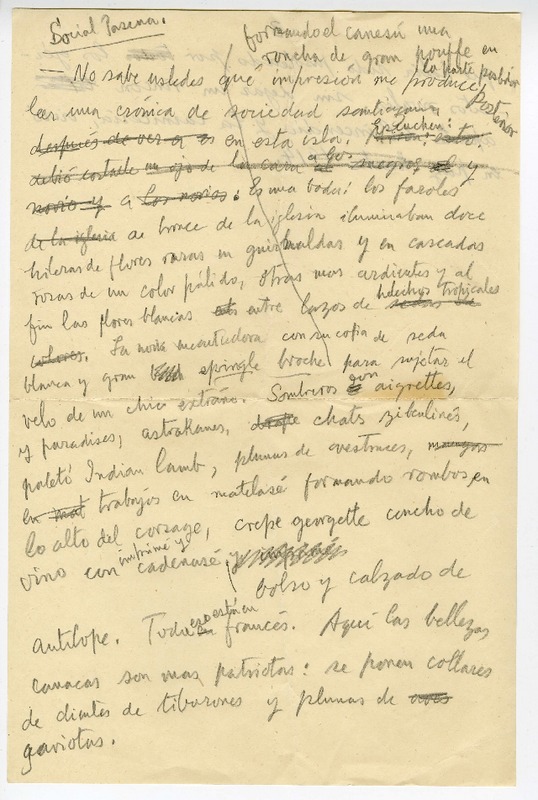 Social Pascua.
formando el canesú una
roncha de gran pouffe en
la parte posterior
— No sabe ustedes qué impresión me produce
posterior
leer una crónica de sociedad
después de ver a es en esta isla. Escuchen: esto
debió costarle un ojo de la cara a los suegros el y
novio y a los novios: Es una boda: los faroles
de la iglesia de bronce de la iglesia iluminaban doce
hileras de flores raras en guirnaldas y en cascadas
rosas de un color pálido, otras mas ardientes y al
fin las flores blancas entre lazos de helechos tropicales
colores. La novia encantadora con su cofia de seda
blanca y gran epingle broche para sujetar el
velo de un chic extraño. Sombreros con aigrettes,
y paradises, astrakanes, chats zibelinés,
paletó Indian Lamb, plumas de avestruces, mangas
en trabajos en matelasé formando rombos, en
lo alto del corsage, crepe georgette concho de
vino con imprimé y cadenasé y
bolso y calzado de
antílope. Todo eso está en francés. Aquí las bellezas
canacas son mas patriotas: se ponen collares
de dientes de tiburones y plumas de aves
gaviotas.